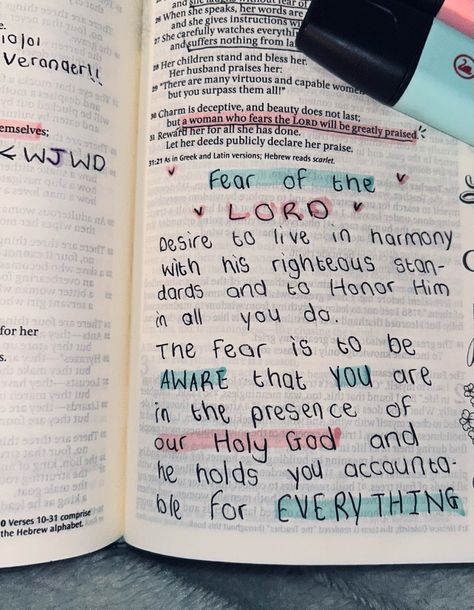 19/01
Veranderl!
emselves;
< WJWD
for her
s.
0 Verses 10-31 comprise
the Hebrew alphabet.
and she laughs without fear of
26 When she speaks, her words are
and she gives instructions wi
27 She carefully watches everything
and suffers nothing from la
28 Her children stand and bless her.
Her husband praises her:
29 "There are many virtuous and capable women
but you surpass them all!"
30 Charm is deceptive, and beauty does not last;
but a woman who fears the LORD will be greatly praised.
31 Reward her for all she has done.
Let her deeds publicly declare her praise.
31:21 As in Greek and Latin versions; Hebrew reads scarlet.
Fear of the
LORD
Desire to live in harmony
with his righteous stan-
dards and to Honor Him
in all you do.
The fear is to be
AWARE that YOU are
in the presence of
our Holy God and
he holds you accounta-
ble for EVERYTHING